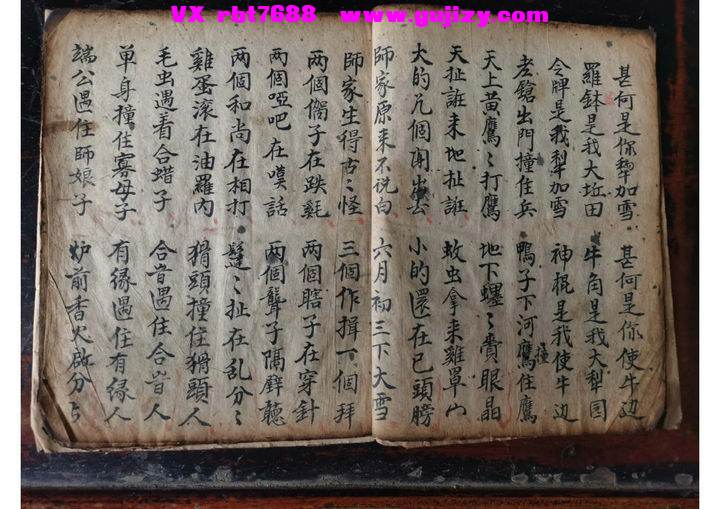 VX rbt7688 www.gojizy.com
甚何是你犁加雪 甚何是你使牛边
羅鉢是我大坵田 牛角是我大犁园
令牌是我犁加雪 神棍是我使牛边
老鎗出門撞住兵 鴨子下河鷹撞住鷹
天上黄鷹〻打鷹 地下螺〻貴眼晶
天扯誑来地扯誑 蚊虫拿来雞罩内
大的几個用出去 小的還在巳頭膀
師家原来不说白 六月初三下大雪
師家生得古〻怪 三個作揖一個拜
两個子在跌 两個瞎子在穿針
两個啞吧在嘆話 两個聾子隔壁聽
两個和尚在相打 〻扯在乱分〻
雞蛋滚在油羅内 猾頭撞住猾頭人
毛虫遇着合蜡子 合遇住合人
单身撞住寡母子 有缘遇住有缘人
端公遇住師娘子 炉前香火啟分